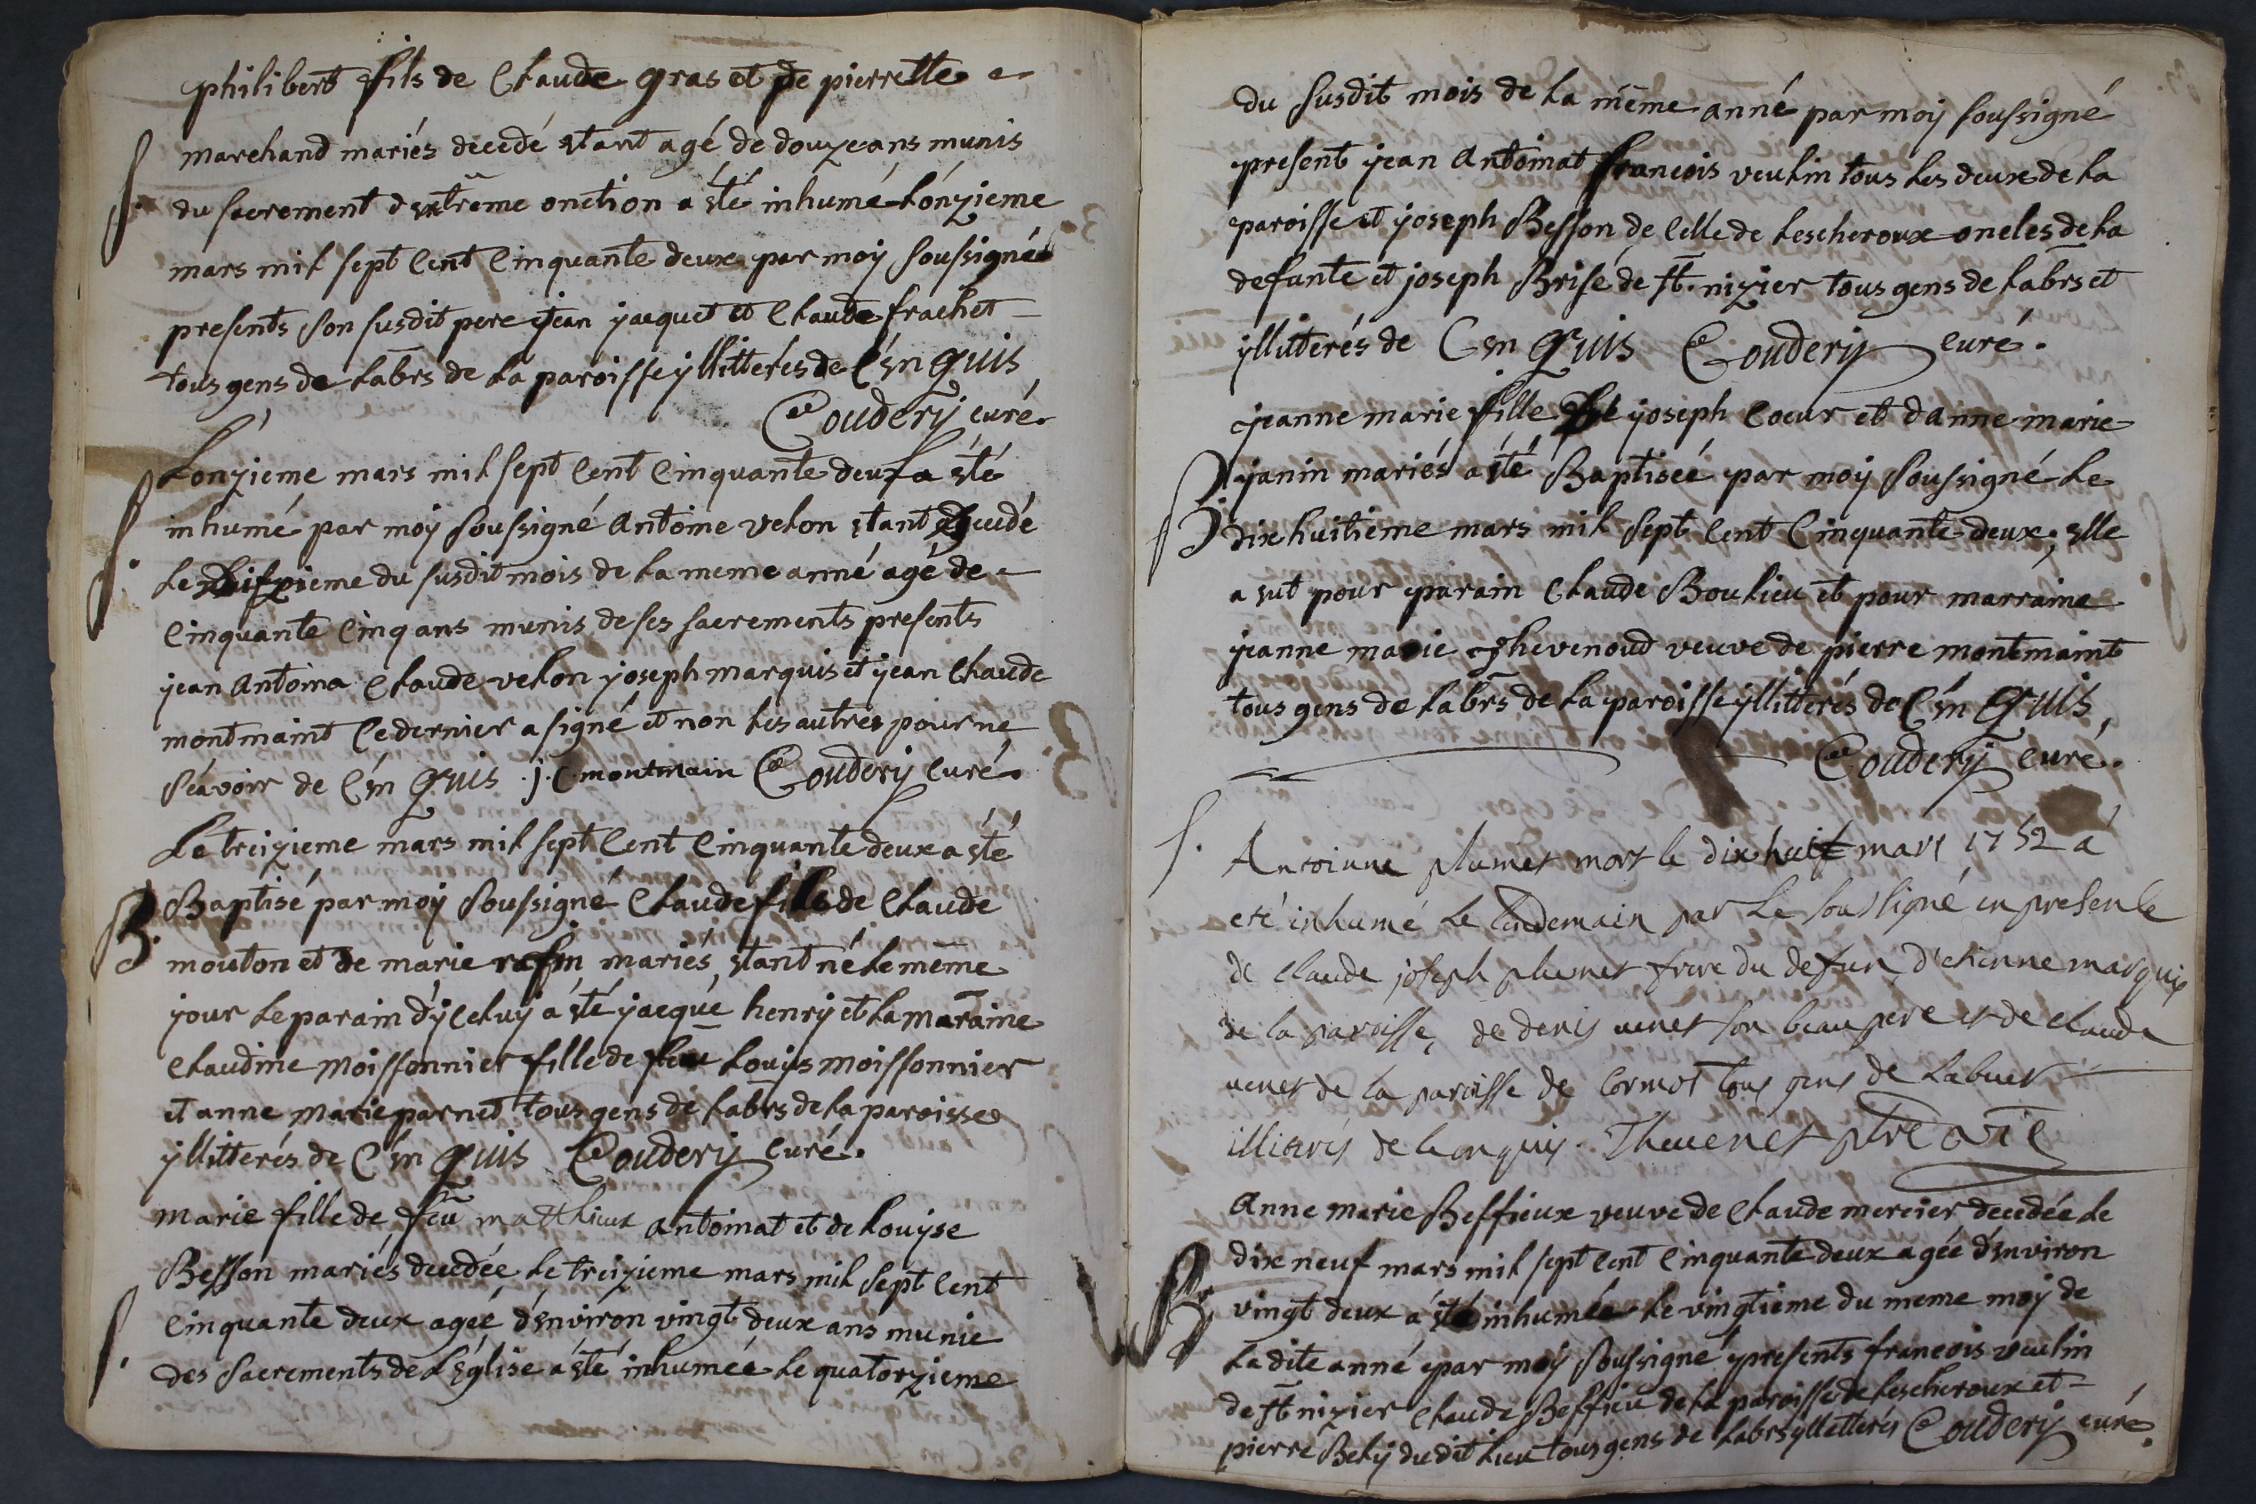 philibert fils de Claude gras et de pierrette
marchand mariés decedé etant agé de douze ans munis
S.
du sacrement d'extrême onction a eté inhumé L'onzieme
mars mil sept Cent Cinquante deux par moÿ soussigné
presents son susdit pere jean jacquet et Claude frachet
tous gens de Labrs de La paroisse ÿllitterés de C en quis
Coudery curé.
L'onzieme mars mil sept Cent Cinquante deux a eté
S.
inhumé par moÿ soussigné Antoine velon etant decedé
Le du susdit mois de La meme anné agé de
Cinquante Cinq ans munis de ses sacrements presents
jean Antoina Claude velon joseph marquis et jean Claude
montmaint Ce dernier a signé et non Les autres pour ne
sçavoir de C en quis j. C montmain Coudery Curé.
Le treizieme mars mil sept Cent Cinquante deux a eté
B.
Baptisé par moÿ soussigné Claude fils de Claude
mouton et de marie rafin mariés, etant né Le même
jour Le parain d'ÿceluy a eté jacque henry et La maraine
Claudine moissonnier fille de feu Louÿs moissonnier
et anne marie parnet tous gens de Labrs de La paroisse
ÿllitterés de C en quis Coudery Curé.
marie fille de feu matthieux antoinat et de Louÿse
Besson mariés decedée Le treizieme mars mil sept Cent
S.
Cinquante deux agée d'environ vingt deux ans munie
des sacrements de L'église a eté inhumée Le quatorzieme
du susdit mois de La même anné par moÿ soussigné
present jean Antoinat francois veulin tous Les deux de La
paroisse et joseph Besson de Celle de Lescheroux oncles de La
defunte et joseph Brisé de st. nizier tous gens de Labrs et
ÿllitterés de C en quis Coudery curé.
jeanne marie fille de joseph Coeur et d'anne marie
B.
janin mariés a eté Baptisée par moÿ soussigné Le
dix huitieme mars mil sept Cent Cinquante deux; elle
a eut pour parain Claude Boulieu et pour marraine
jeanne marie Thevenoud veuve de pierre montmaint
tous gens de Labrs de La paroisse ÿllitterés de C en quis,
Coudery Curé.
S.
Antoinne plumet mort le dix huit mars 1752 a
eté inhumé Le lendemain par Le soussigné en presence
de claude joseph plumet frere du defun, d'etienne marquis
de la paroisse, de denis venet son beaupere et de claude
venet de la paroisse de Cormoz tous gens de Labeur
illiterés de ce enquis. Thevenet ptre vic
Anne marie Beffieux veuve de Claude mercier decedée Le
B.
dix neuf mars mil sept Cent Cinquante deux agée d'environ
vingt deux a eté inhumée Le vingtieme du meme moÿ de
La dite anné par moÿ soussigné presents francois veulin
de st nizier Claude Beffieu de La paroisse de Lescheroux et
pierre Belÿ du dit Lieu tous gens de Labrs ÿlletterés Coudery curé.